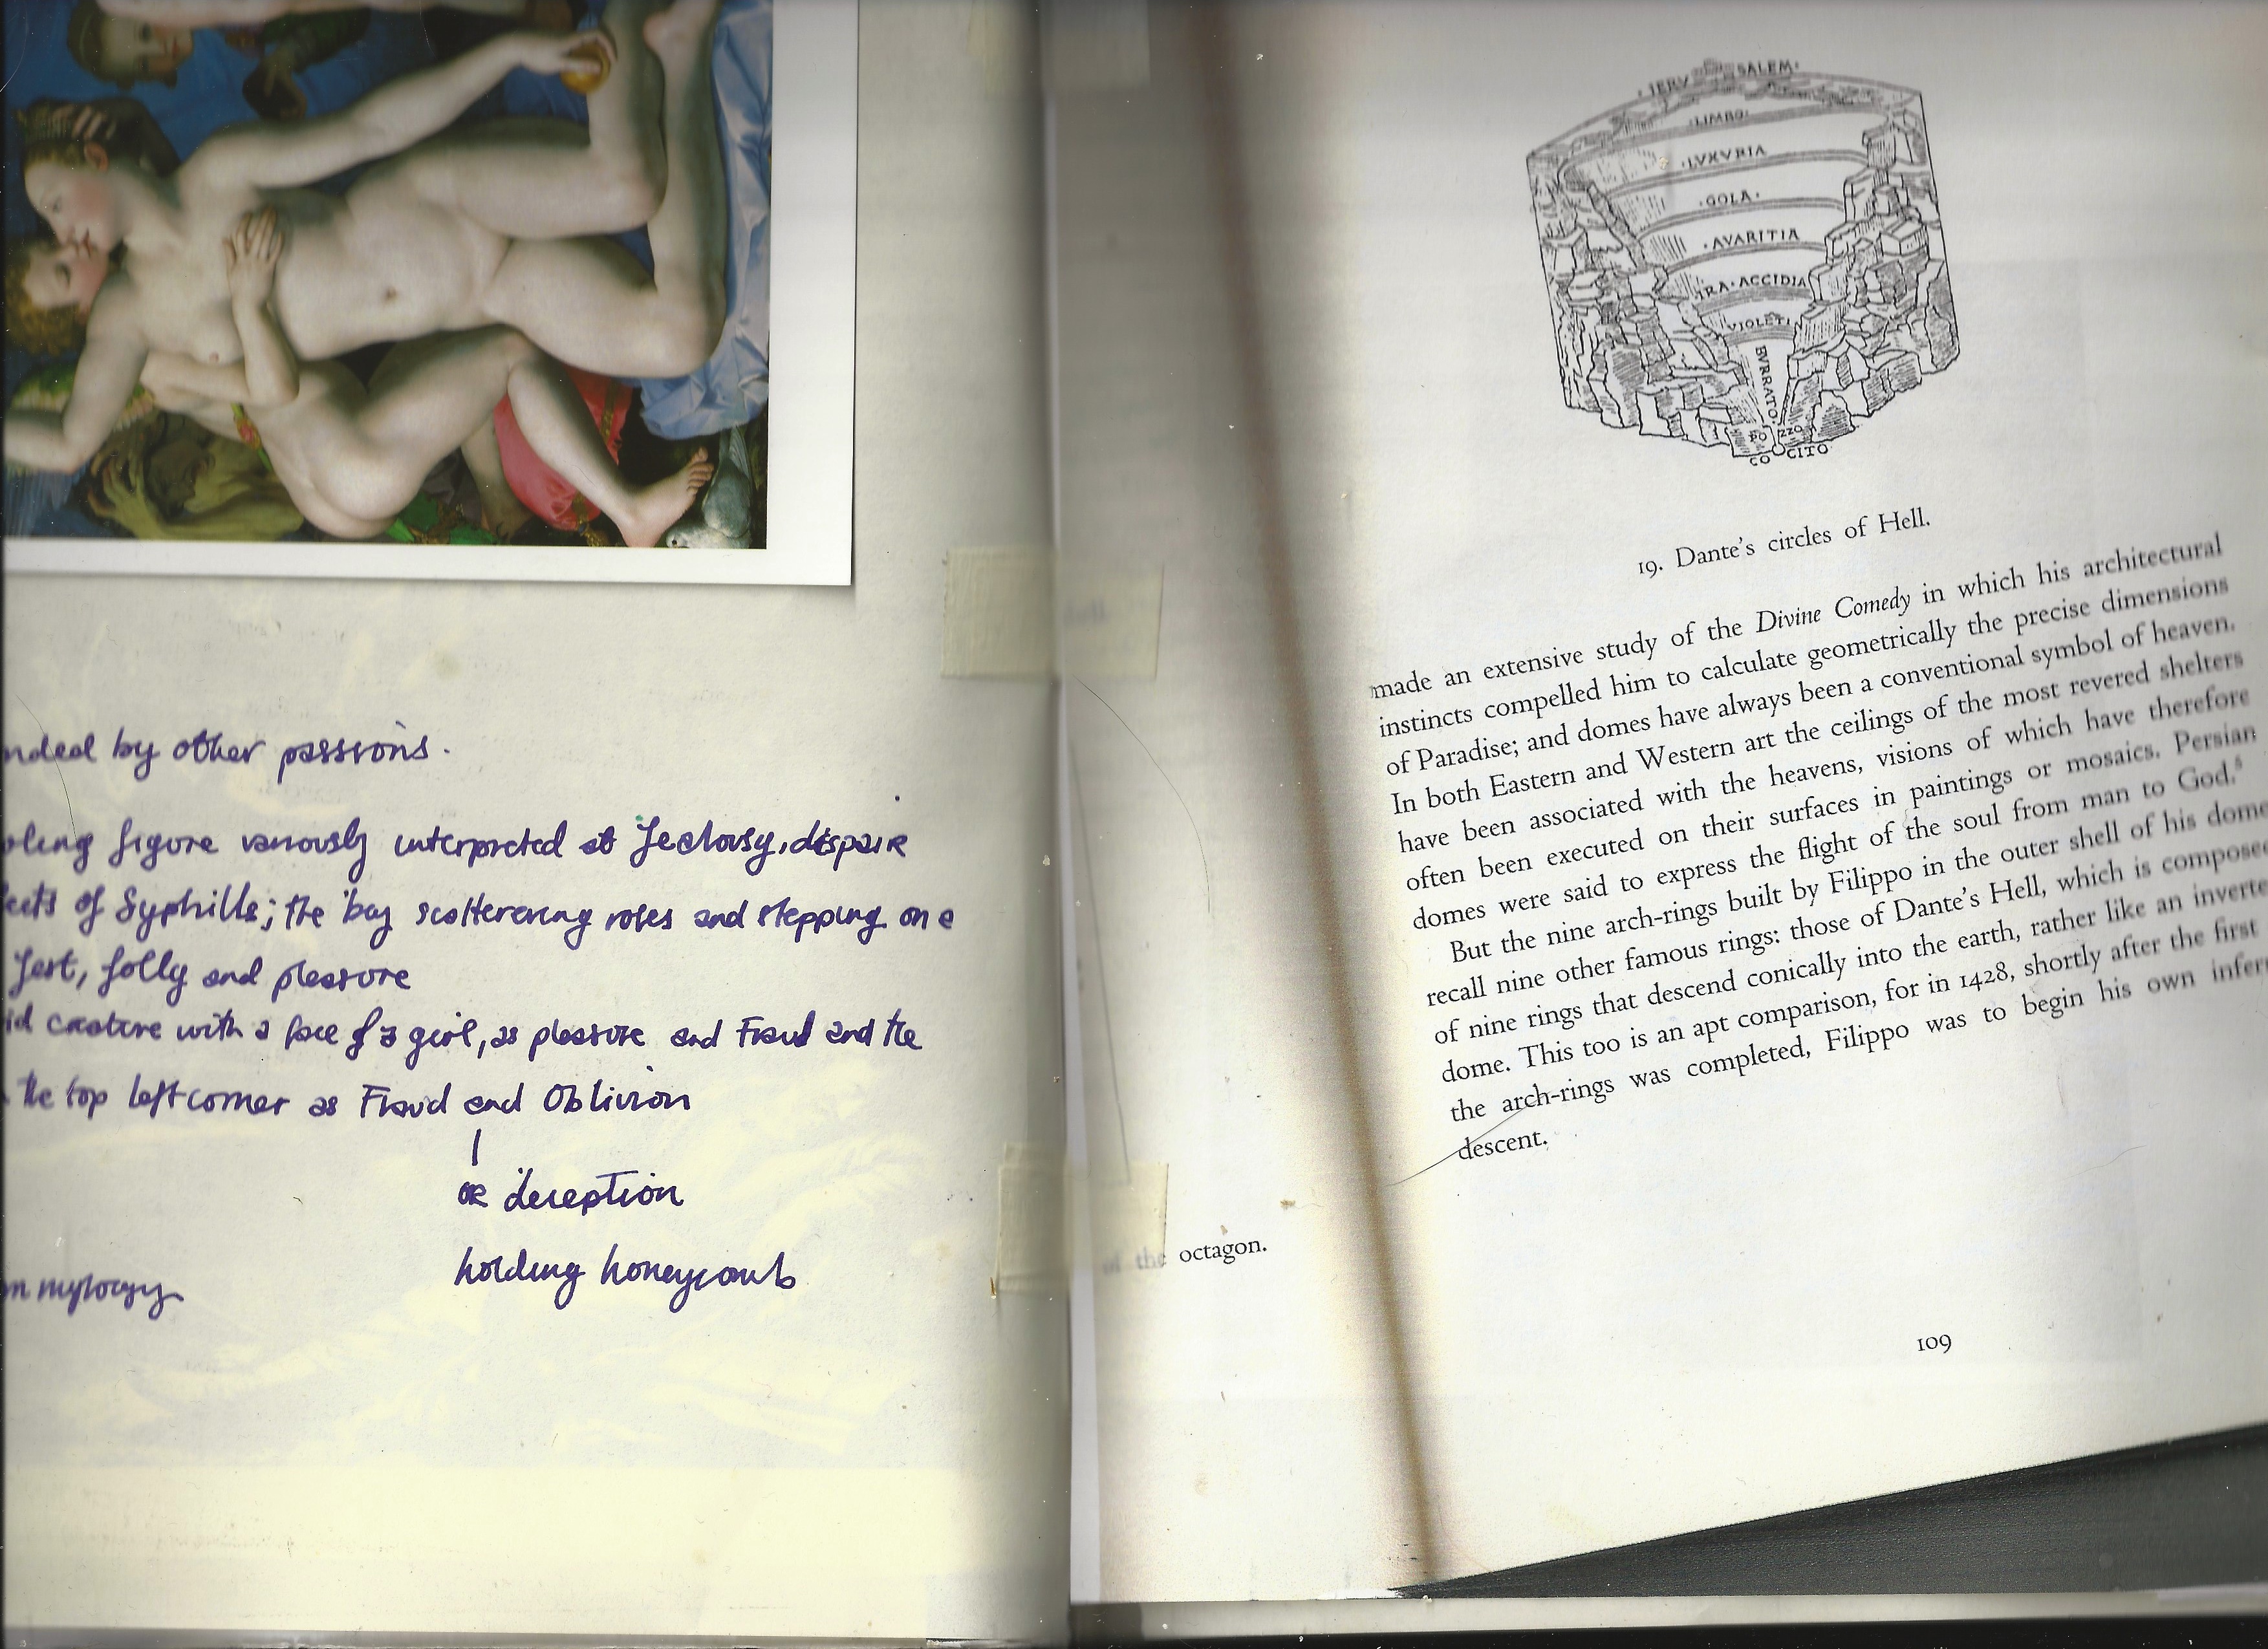 ded by other passions.
figure variously interpreted at Jealousy, dispair
of Syphills; the boy scatterering roses and stepping on a
Jest, folly and pleasure
creature with a face of a girl, as pleasure and Fraud and the
the top left corner as Fraud and Oblivion
OR deception
holding honeycomb
of the octagon.
·IERV SALEM·
·LIMBO·
·LVXVRIA
·GOLA·
·AVARITIA
IRA·ACCIDIA
VIOLETI
BVRRATO·
PO ZZO
CO CITO
19. Dante's circles of Hell.
made an extensive study of the Divine Comedy in which his architectural
instincts compelled him to calculate geometrically the precise dimensions
of Paradise; and domes have always been a conventional symbol of heaven.
In both Eastern and Western art the ceilings of the most revered shelters
have been associated with the heavens, visions of which have therefore
often been executed on their surfaces in paintings or mosaics. Persian
domes were said to express the flight of the soul from man to God.⁵
But the nine arch-rings built by Filippo in the outer shell of his dome
recall nine other famous rings: those of Dante's Hell, which is composed
of nine rings that descend conically into the earth, rather like an inverte
dome. This too is an apt comparison, for in 1428, shortly after the first
the arch-rings was completed, Filippo was to begin his own infern
descent.
109